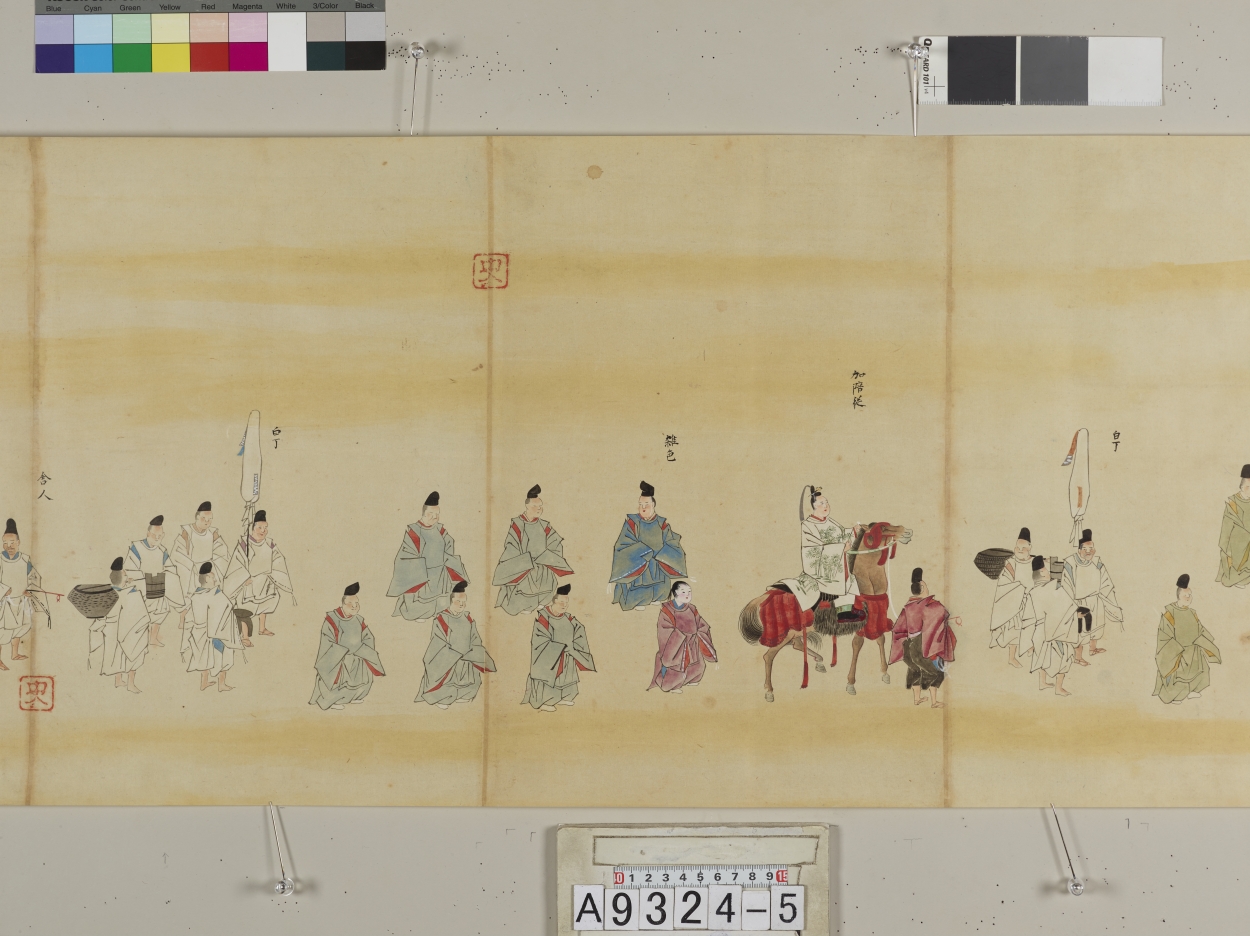 Blue Cyan Green Yellow Red Magenta White 3/Color Black
白丁
加陪従
雑色
白丁
舎人
史
史
0 1 2 3 4 5 6 7 8 9 15
A9324-5